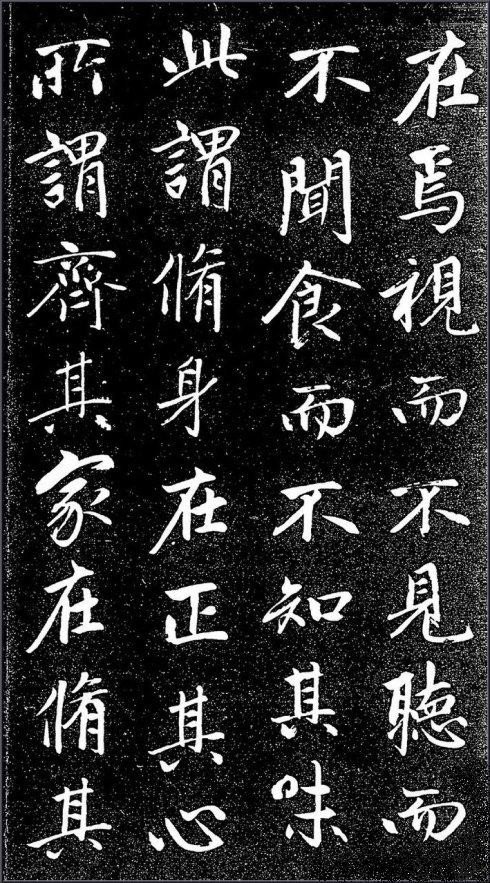 在焉視而不見聽而
不聞食而不知其味
此謂脩身在正其心
所謂齊其家在脩其